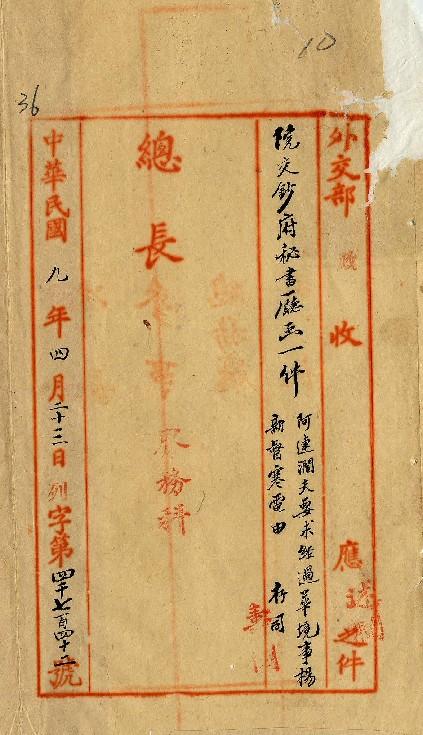 10
36
外交部 收 應 之件
院交鈔府秘書廳函一件 阿連闊夫要求經過華境事楊
新督寒電由
總長
中華民國九年四月二十三日列字第四千七百四十二號